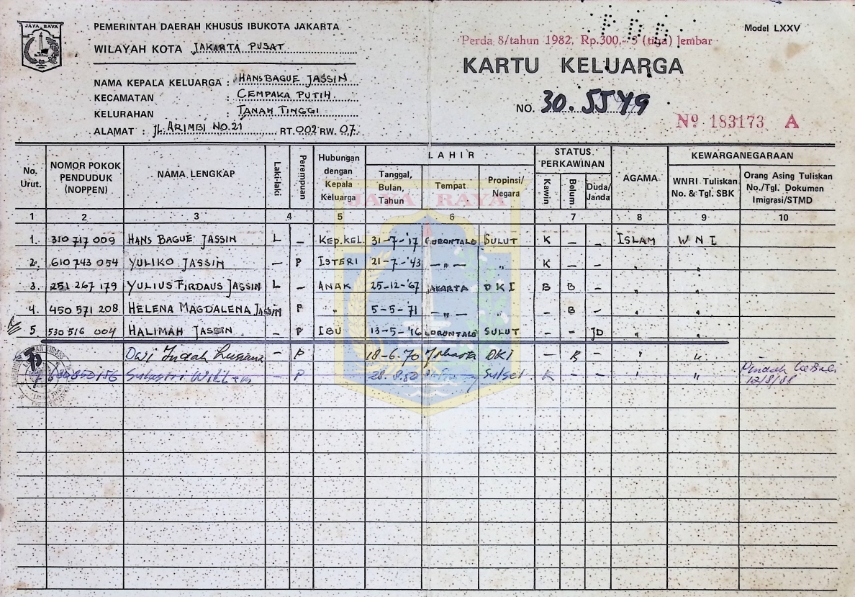 JAYA RAYA
PEMERINTAH DAERAH KHUSUS IBUKOTA JAKARTA
WILAYAH KOTA JAKARTA PUSAT
Model LXXV
Perda 8/tahun 1982, Rp.300,- 3 (tiga) lembar
KARTU KELUARGA
NO. 30.5549
Nº 183173 A
NAMA KEPALA KELUARGA : HANS BAGUE JASSIN
KECAMATAN : CEMPAKA PUTIH
KELURAHAN : TANAH TINGGI
ALAMAT : JL. ARIMBI NO.21 RT.002 RW.07
No. Urut. NOMOR POKOK PENDUDUK (NOPPEN) NAMA LENGKAP Laki-laki Perempuan Hubungan dengan Kepala Keluarga LAHIR Tanggal, Bulan, Tahun Tempat Propinsi/ Negara STATUS PERKAWINAN Kawin Belum Duda/ Janda AGAMA KEWARGANEGARAAN WNRI Tuliskan No. & Tgl. SBK Orang Asing Tuliskan No/Tgl. Dokumen Imigrasi/STMD
1 2 3 4 5 6 7 8 9 10
JAYA RAYA
1. 310 717 009 HANS BAGUE JASSIN L - KEP.KGL. 31-7-'17 GORONTALO SULUT K - - ISLAM WNI
2. 610743 054 YULIKO JASSIN - P ISTERI 21-7-'43 -"- " K - - " "
3. 251 267 179 YULIUS FIRDAUS JASSIN L - ANAK 25-12-'67 JAKARTA DKI B B - " "
4. 450 571 208 HELENA MAGDALENA JASSIN P " 5-5-'71 -"- " - B - " "
5. 530 516 004 HALIMAH JASSIN - P IBU 13-5-'16 GORONTALO SULUT - - JD " "
Dwi Indah - P 18-6-70 Jakarta DKI - B - " " -
- P Sulsel K - " "
12/8/88